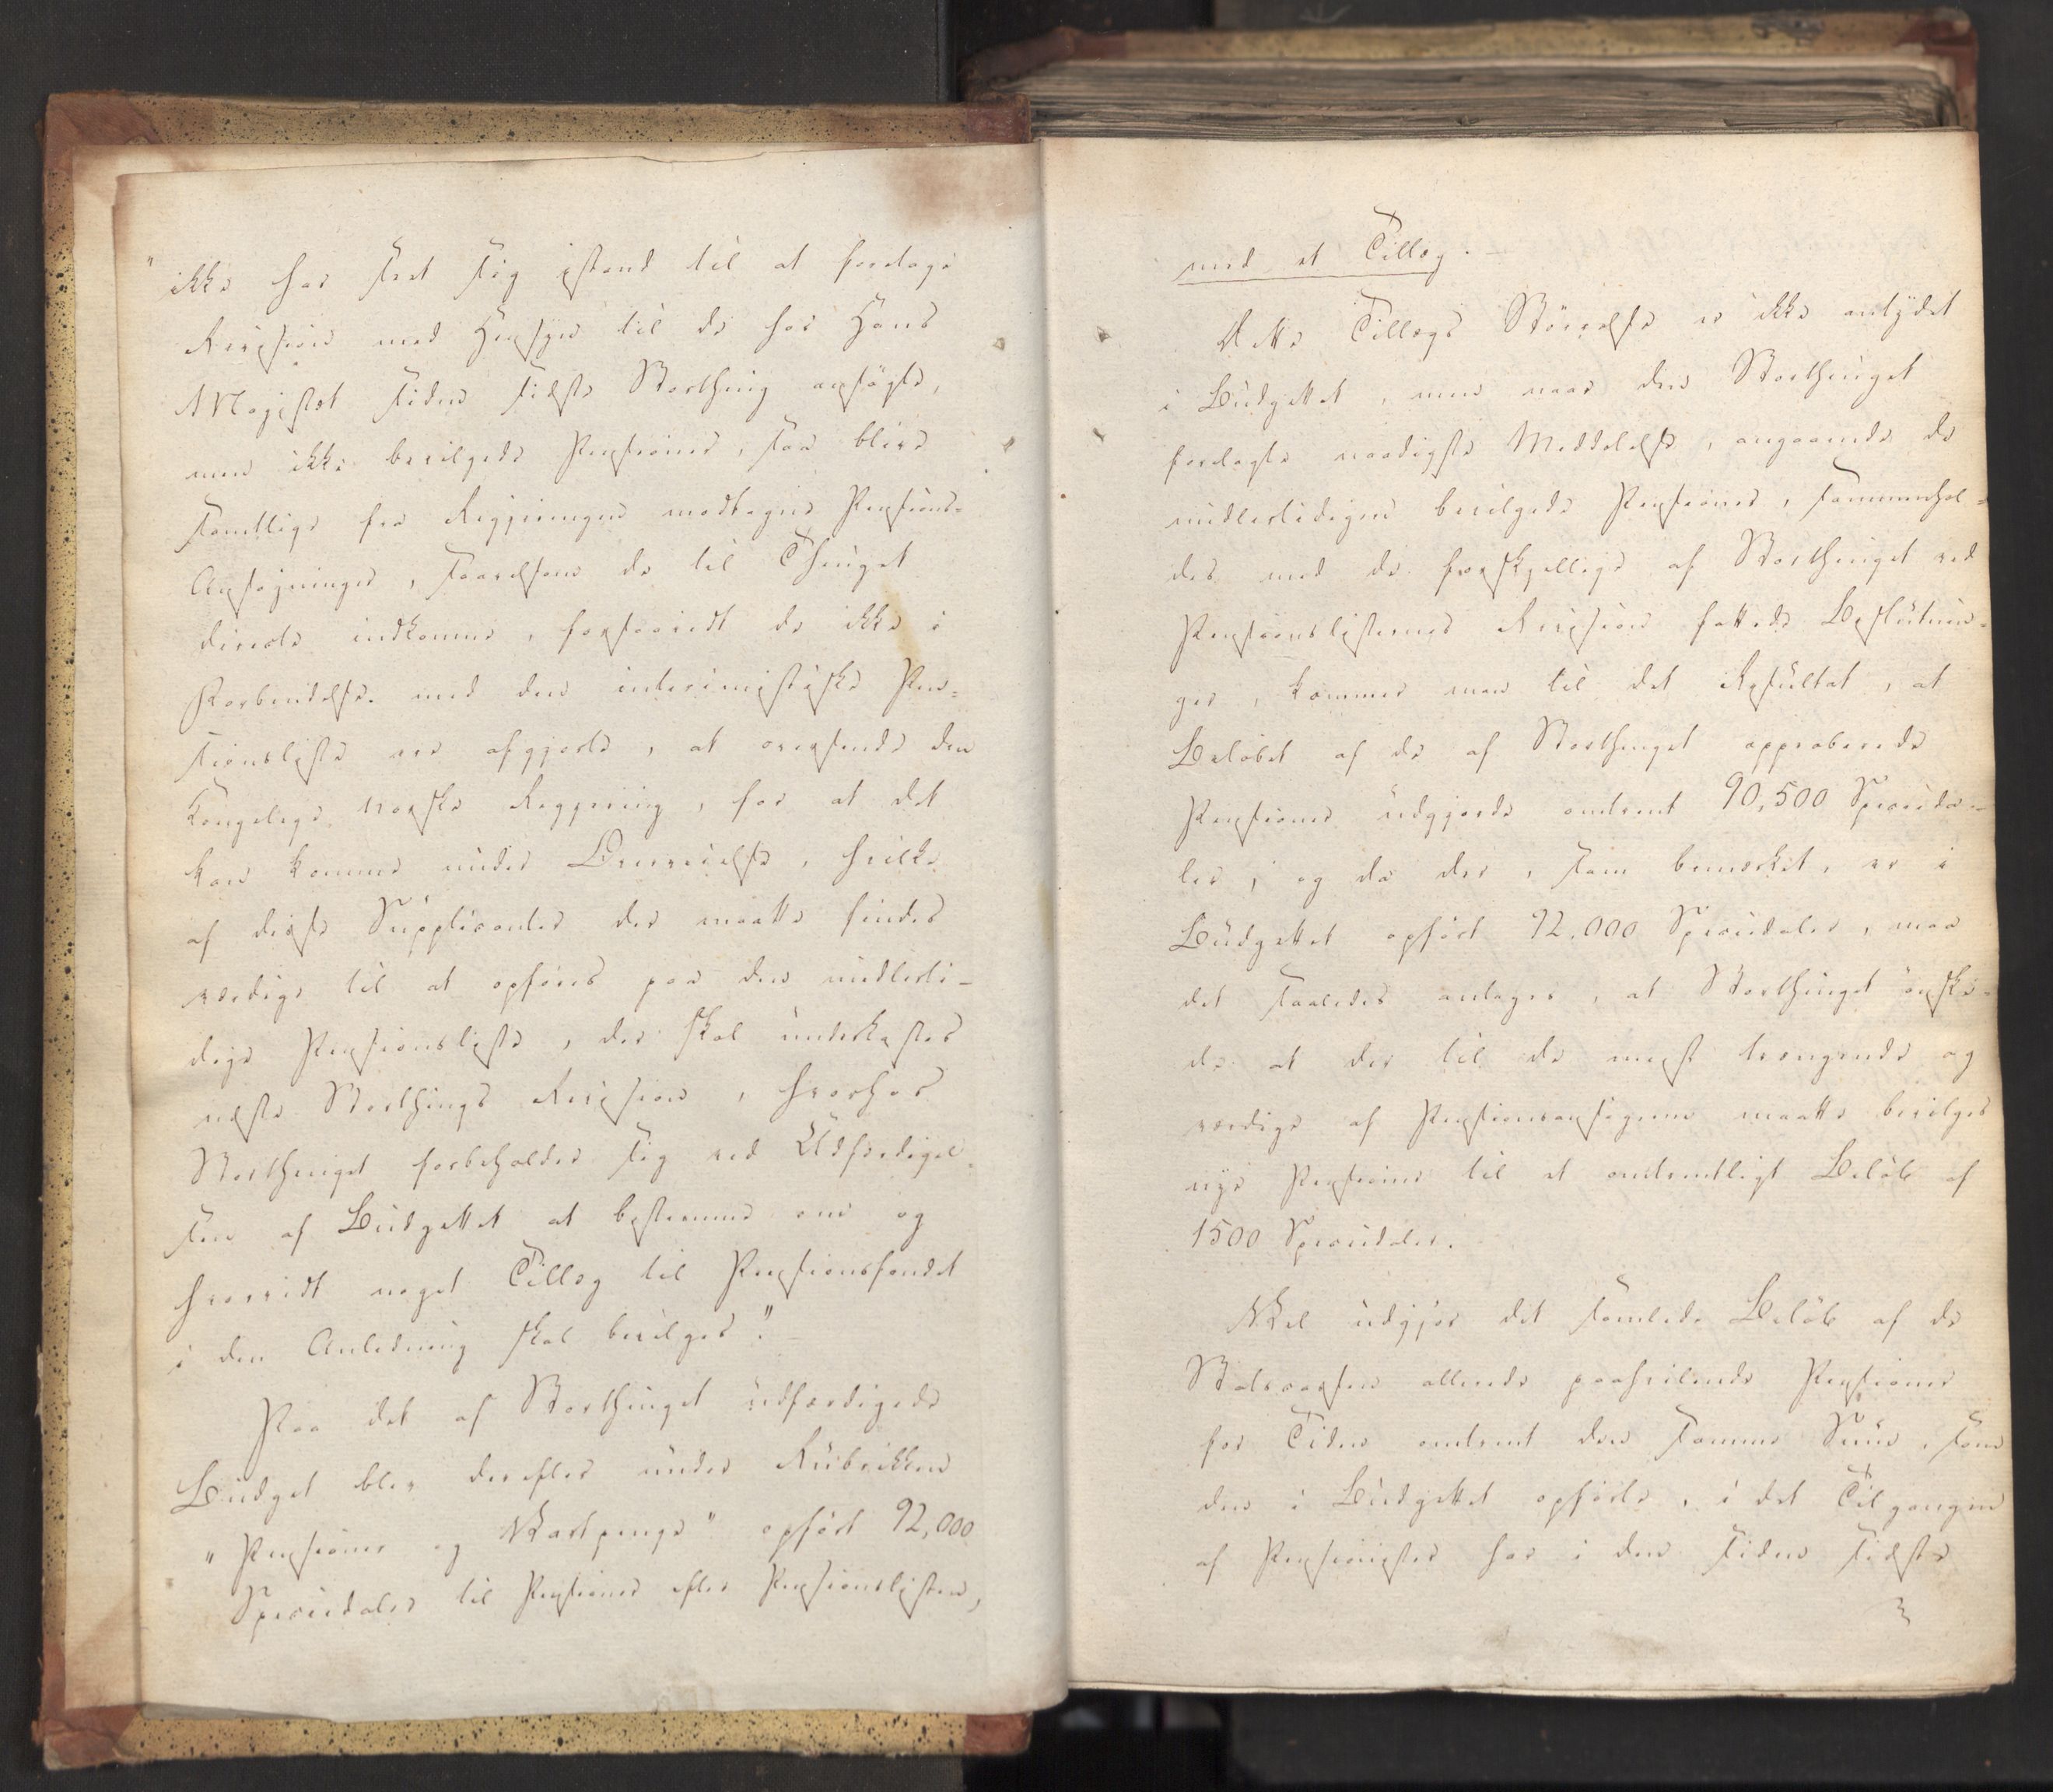 " ikke har seet sig istand til at foretage
Revision med Hensyn til de hos Hans
Majestæt siden sidste Storthing ansøgte,
men ikke bevilgede Pensioner, saa blive
samtlige fra Regjeringen modtagne Pensions-
Ansøgninger, saavelsom de til Thinget
directe indkomne, forsaavidt de ikke i
Forbindelse med den interimistiske Pen-
sionsliste ere afgjorte, at oversende den
Kongelige norske Regjering, for at det
kan komme under Overveielse, hvilke
af disse Supplicanter der maatte findes
værdige til at opføres paa den midlerti-
dige Pensionsliste, der skal underkastes
næste Storthings Revision, hvorhos
Storthinget forbeholder sig ved Udfærdigel-
sen af Büdgettet at bestemme om og
hvorvidt noget Tillæg til Pensionsfondet
i den Anledning skal bevilges". -
Paa det af Storthinget udfærdigede
Büdget blev derefter under Rubrikken
" Pensioner og Vartpenge" opført 92,000
Speciedaler til Pensioner efter Pensionslisten,
med et Tillæg. -
Dette Tillægs Størrelse er ikke antydet
i Büdgettet, men naar den Storthinget
forelagte naadigste Meddelelse, angaaende de
midlertidigen bevilgede Pensioner, sammenhol-
des med de forskjellige af Storthinget ved
Pensionslisternes Revision fattede Beslutnin-
ger, kommer man til det Resultat, at
Beløbet af de af Storthinget approberede
Pensioner udgjorde omtrent 90,500 Specieda-
ler; og da der, som bemærket, er i
Büdgettet opført 92,000 Speciedaler, maa
det saaledes antages, at Storthinget ønske-
de at der til de meest trængende og
værdige af Pensionsansøgerne maatte bevilges
nye Pensioner til et omtrentligt Beløb af
1500 Speciedaler.
Vel udgjør det samlede Beløb af de
Statscassen allerede paahvilende Pensioner
for Tiden omtrent den samme Sum, som
den i Büdgettet opførte, i det Tilgangen
af Pensionister har i den siden sidste
3